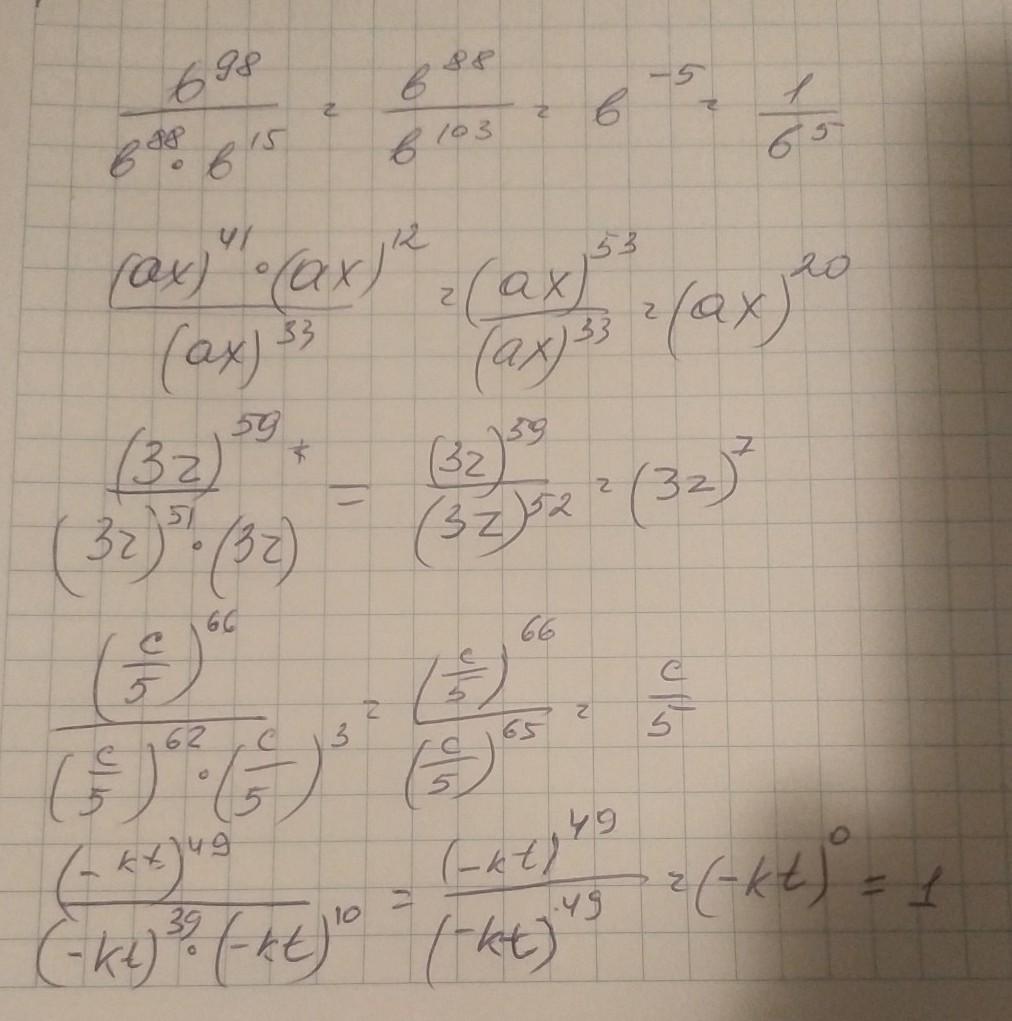 b^98 / (b^88 · b^15) = b^88 / b^103 = b^-5 = 1 / b^5
(ax)^41 · (ax)^12 / (ax)^33 = (ax)^53 / (ax)^33 = (ax)^20
(3z)^59 * / ((3z)^51 · (3z)) = (3z)^59 / (3z)^52 = (3z)^7
(c/5)^66 / ((c/5)^62 · (c/5)^3) = (c/5)^66 / (c/5)^65 = c/5
(-kt)^49 / ((-kt)^39 · (-kt)^10) = (-kt)^49 / (-kt)^49 = (-kt)^0 = 1